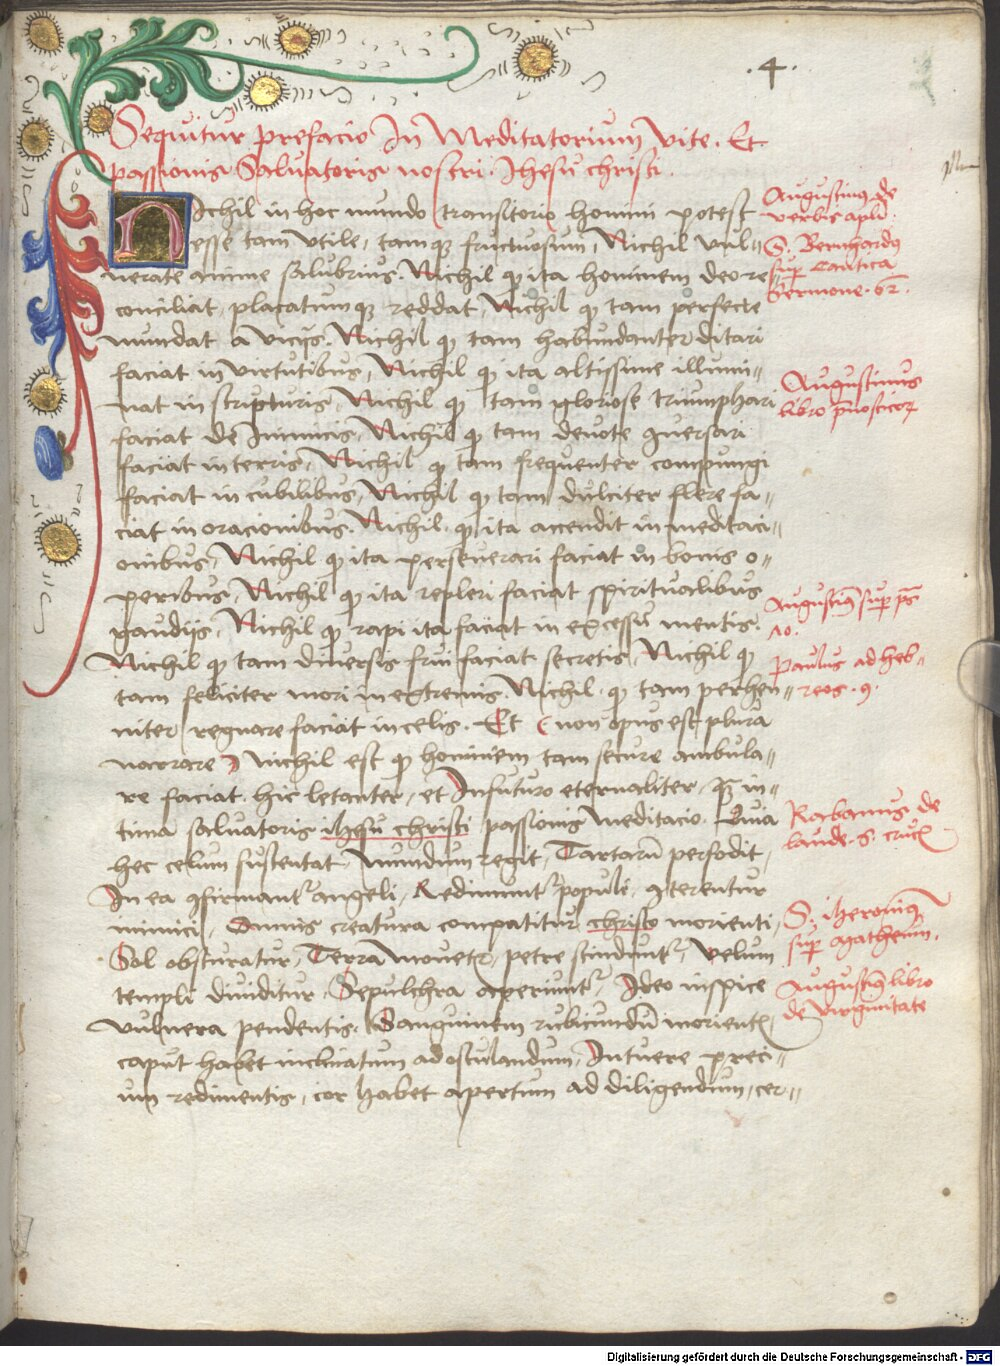 .4.
Sequitur prefacio In Meditatorium Vite. Et
passionis Saluatoris nostri Ihesu christi.
Nichil in hoc mundo transitorio homini potest
esse tam vtile, tamq3 fructuosum, Nichil vul-
nerate anime salubrius. Nichil q ita hominem deo re-
conciliat, placatumq3 reddat, Nichil q tam perfecte
mundat a vicijs. Nichil q tam habundanter ditari
faciat in virtutibus, Nichil q ita altissime illumi-
nat in scripturis, Nichil q tam gloriose triumphari
faciat de Inimicis, Nichil q tam deuote 9uersari
faciat in terris, Nichil q tam frequenter compungi
faciat in cubilibus, Nichil q tam dulciter flere fa-
ciat in oracionibus. Nichil q ita accendit in meditaci-
onibus, Nichil q ita perseuerari faciat in bonis o-
peribus, Nichil q ita repleri faciat spiritualibus
gaudijs, Nichil q rapi ita faciat in excessu mentis.
Nichil q tam diuersis frui faciat secretis, Nichil q
tam feliciter mori in extremis. Nichil q tam perhen-
niter regnare faciat in celis. Et (non opus est plura
narrare) nichil est q hominem tam secure ambula-
re faciat hic letanter, et Infuturo eternaliter, q3 in-
tima saluatoris ihesu christi passionis meditacio. Quia
hec celum sustentat Mundum regit, Tartaru perfodit,
In ea 9firmant angeli, Redimunt populi, 9terentur
inimici, Omnis creatura compatitur christo morienti,
Sol obscuratur, Terra mouetr, petre scindunt, Velum
templi diuiditur, Sepulchra aperiunt, Ideo inspice
vulnera pendentis. Sanguinem rubicundu morient
caput habet inclinatum ad osculandum, Intuere preci-
um redimentis, cor habet apertum ad diligendum, cer-
Augustinus de
verbis apli
S. Bernhardus
sup Cantica
Sermone. 62.
Augustinus
libro
Augustin sup ps
10.
Paulus ad heb-
reos. 9.
Rabanus de
laude. S. cruc
S. iheronim
sup agatheum.
Augustin libro
de virginitate
Digitalisierung gefördert durch die Deutsche Forschungsgemeinschaft - DFG